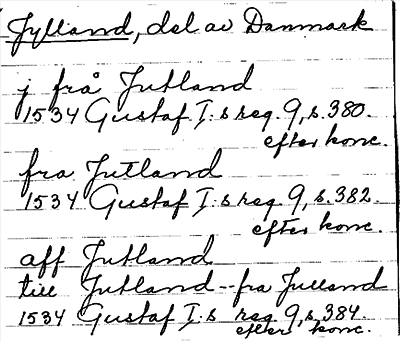 Jylland, del av Danmark
j från Jutland
1534 Gustaf I:s reg. 9, s. 380.
efter konc.
fra Jutland
1534 Gustaf I:s reg. 9, s. 382.
efter konc.
aff Jutland
till Jutland -- fra Julland
1534 Gustaf I:s reg. 9, s. 384.
efter konc.